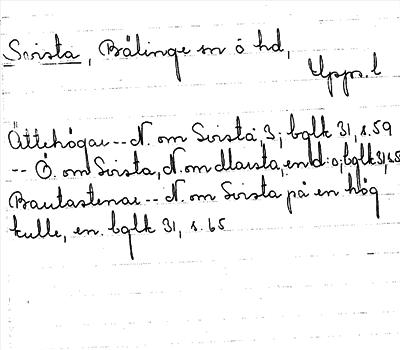 Svista, Bälinge sn o hd,
Upps. l
Ättehögar -- N. om Svista, 3; bglk 31, s. 59
-- Ö. om Svista, N. om Marsta, en d:o; bglk 31, s. 65
Bautastenar -- N. om Svista på en hög
kulle, en. bglk 31, s. 65